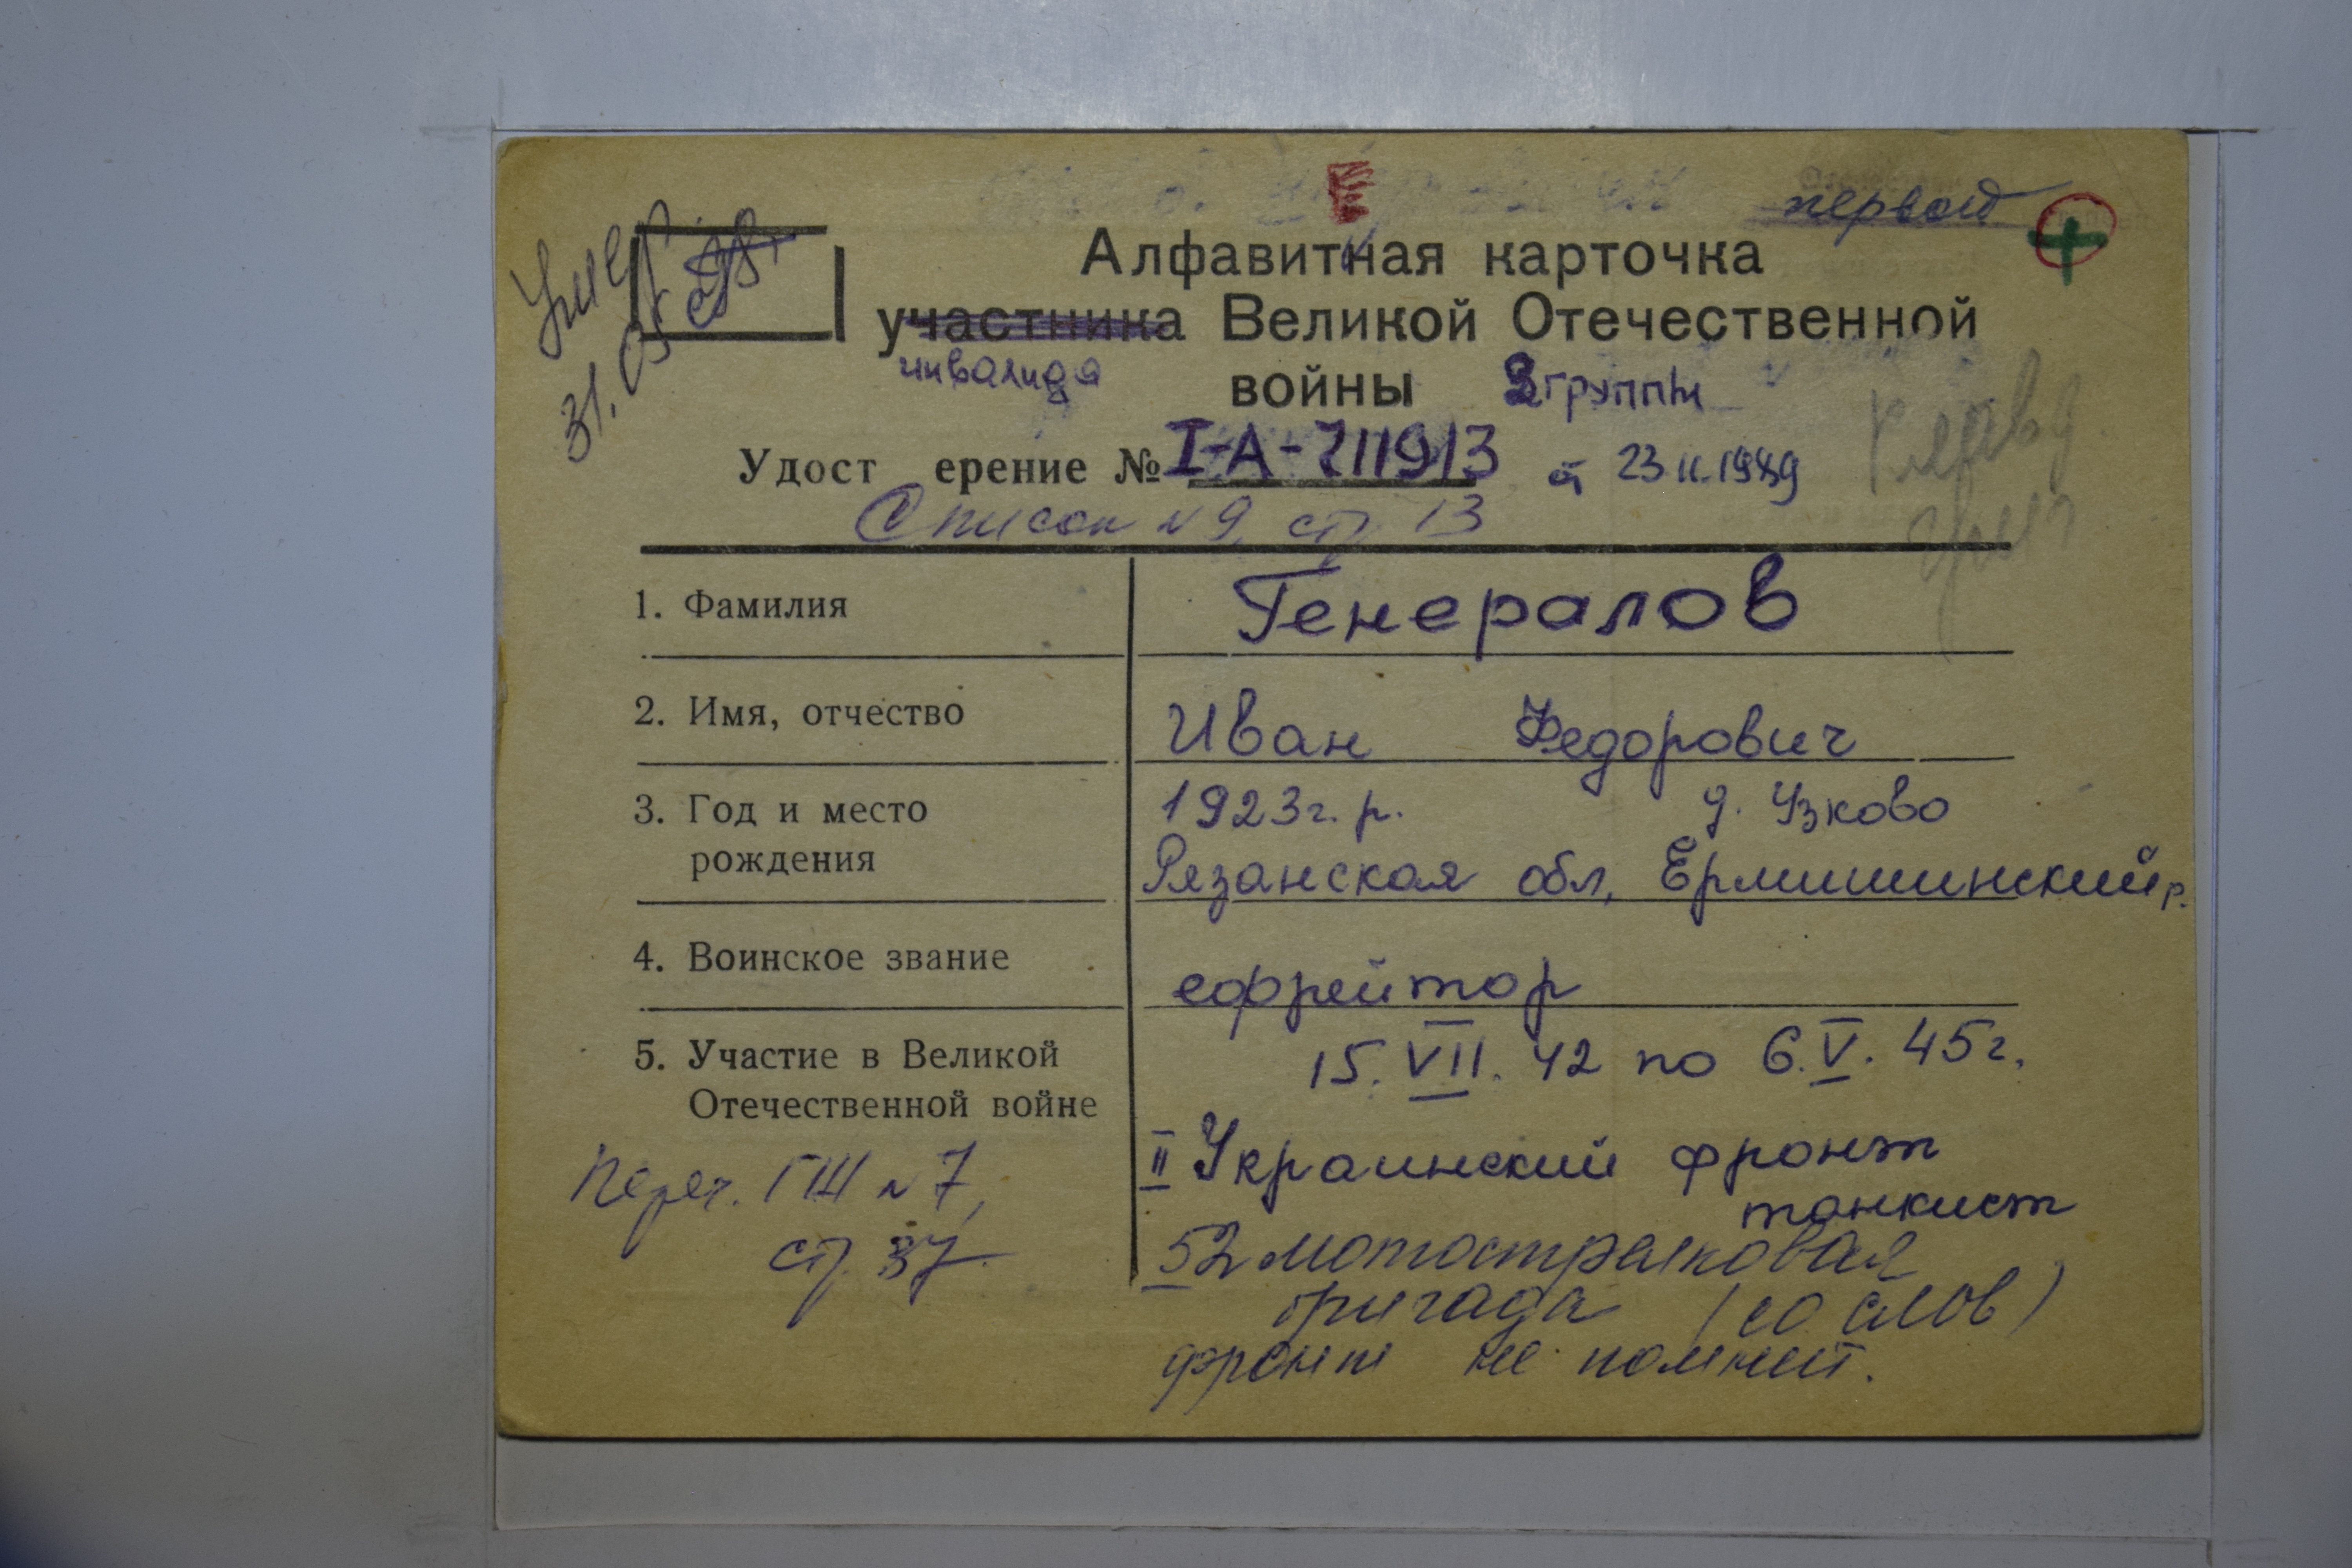 первой
Умер
31.05.98г
Алфавитная карточка
участника Великой Отечественной
инвалида войны 2 группы
Удост ерение № I-А-711913 от 23.11.1989
Список №9, стр 13
1. Фамилия Генералов
2. Имя, отчество Иван Федорович
3. Год и место 1923г.р. д. Узково
рождения Рязанская обл, Ермишинский р.
4. Воинское звание ефрейтор
5. Участие в Великой 15.VII.42 по 6.V.45г.
Отечественной войне
II Украинский фронт
танкист
Переч. ГШ №7,
стр. 37
52 мотострелковая
бригада (со слов)
фронт не помнит.